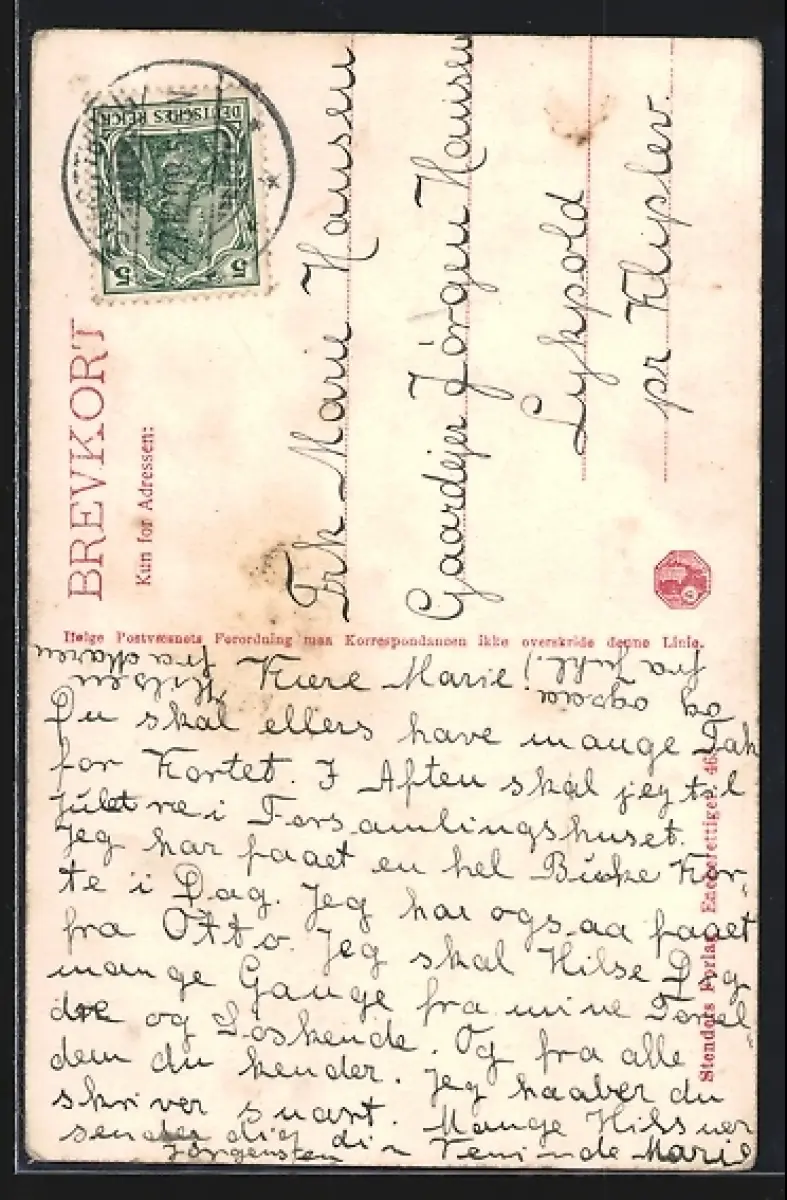 DEUTSCHES REICH
5 5
BREVKORT
Kun for Adressen:
Frk Marie Hansen
Gaardejer Jörgen Hansen
Lykpold
pr Kliplev.
Ifølge Postvæsnets Forordning maa Korrespondancen ikke overskride denne Linie.
Kære Marie!
Du skal ellers have mange Tak
for Kortet. I Aften skal jeg til
Juletræ i Forsamlingshuset.
Jeg har faaet en hel Bunke Kor-
te i Dag. Jeg har ogsaa faaet
fra Otto. Jeg skal Hilse Dig
mange Gange fra mine Forel-
dre og Söskende. Og fra alle
dem du kender. Jeg haaber du
skriver snart. Mange Hilsner
sender dig din Veninde Marie
Jörgensen
og ogsaa
fra
Hilsen
fra Maren
Stenders Forlag. Eneberettiget 46